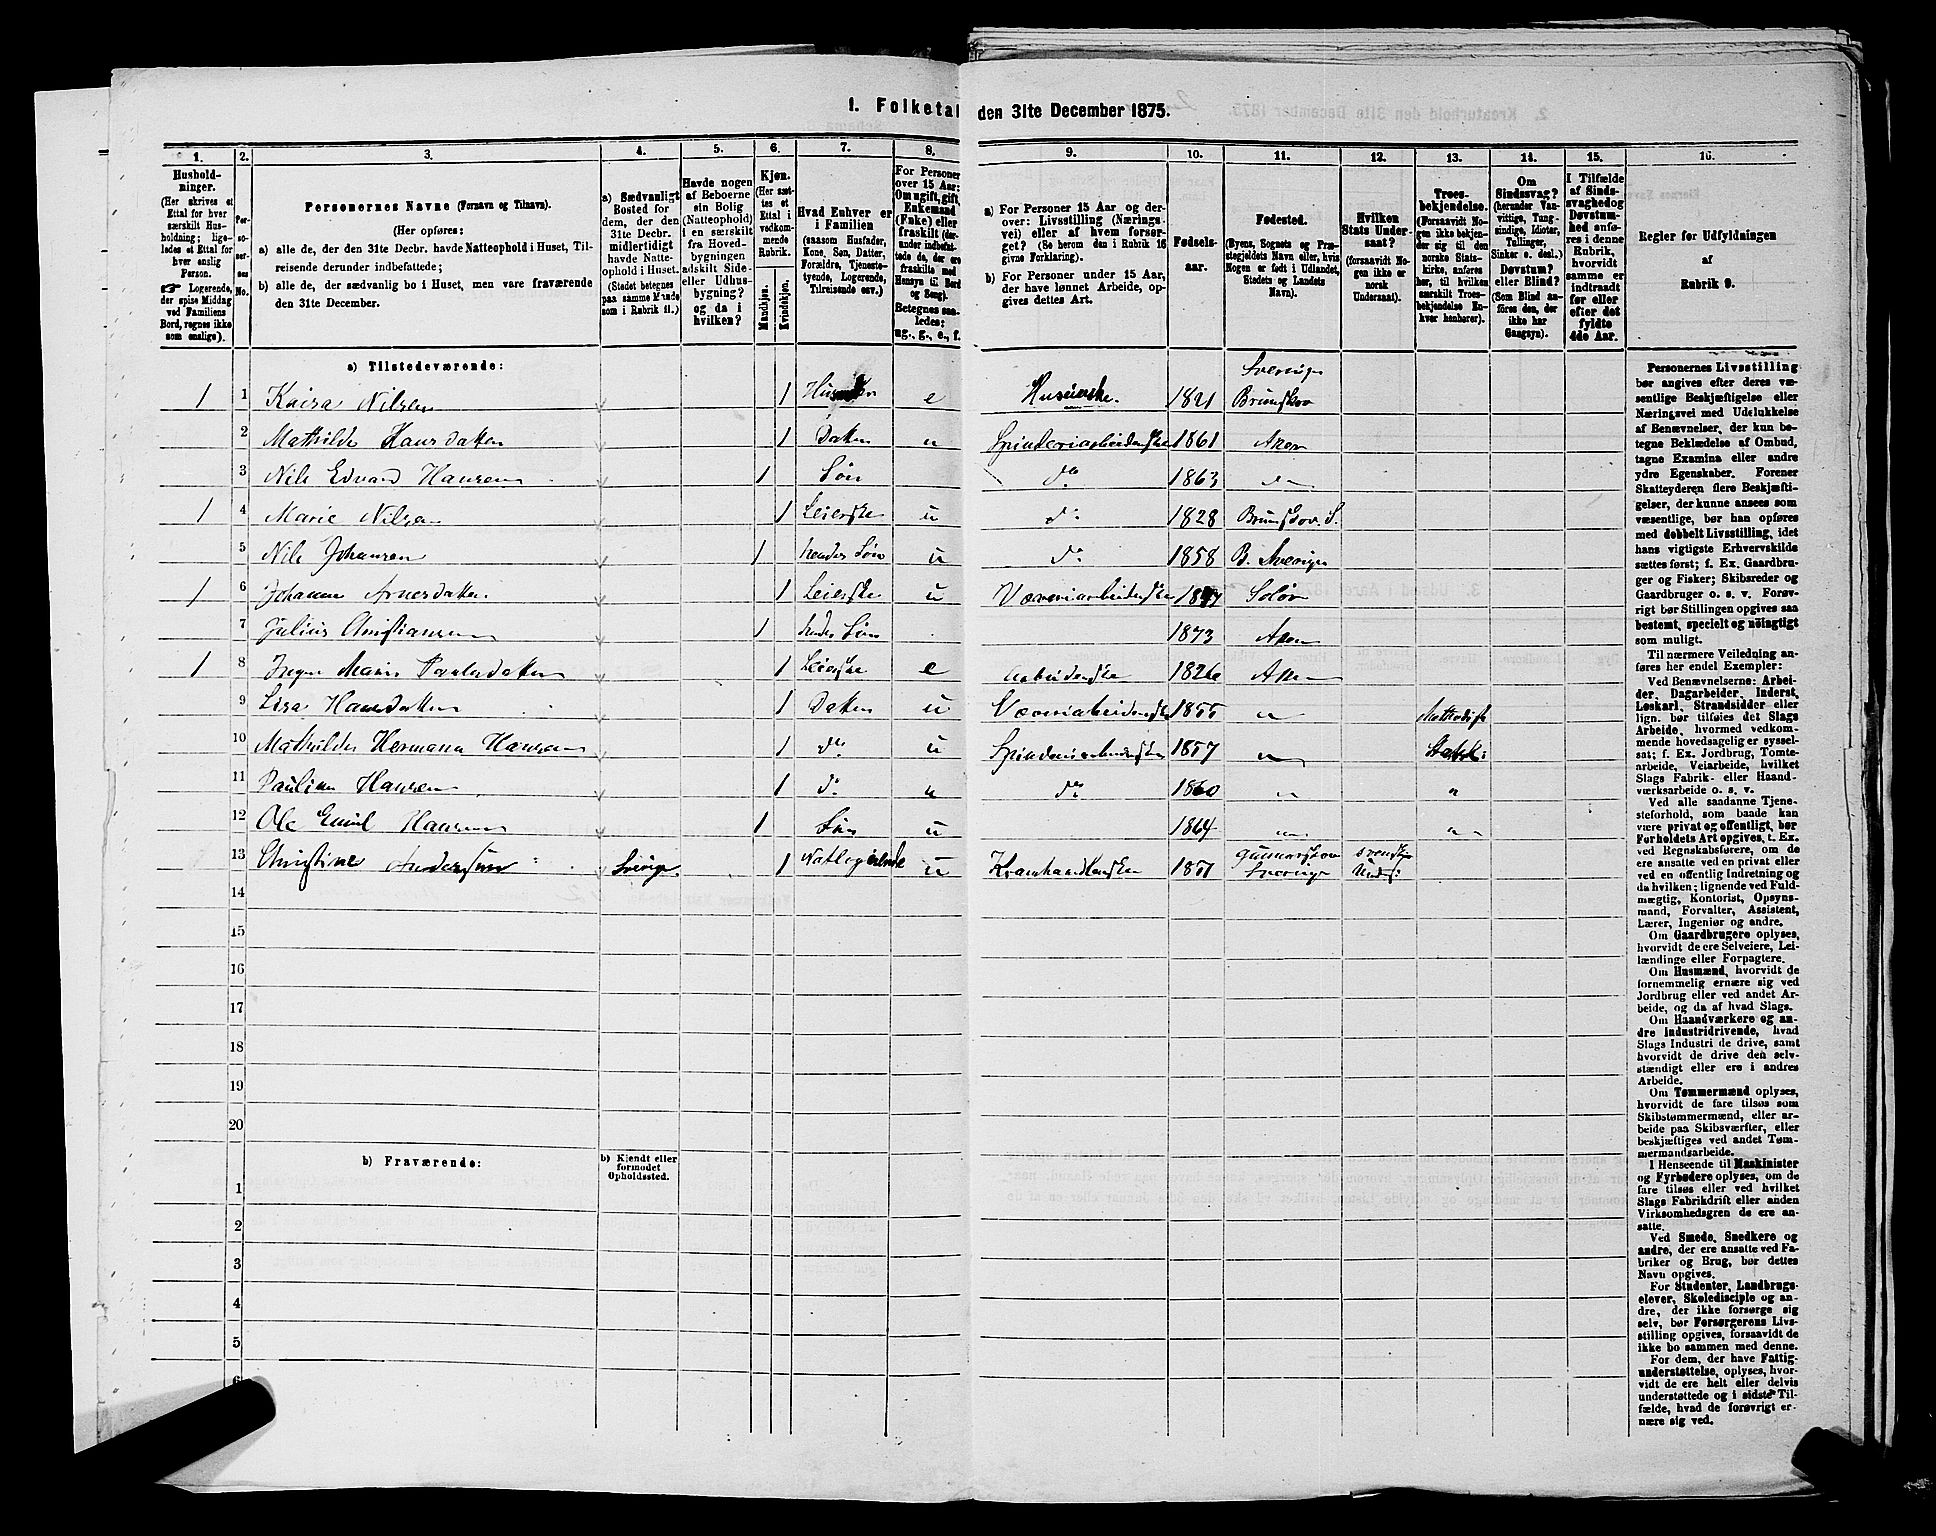 1. Folketal den 31te December 1875.
1. 2. 3. 4. 5. 6. 7. 8. 9. 10. 11. 12. 13. 14. 15. 16.
Husholdninger. (Her skrives et Ettal for hver særskilt Husholdning; ligeledes et Ettal for hver enslig Person. Logerende, der spise Middag ved Familiens Bord, regnes ikke som enslige).
Personernes No.
Personernes Navne (Fornavn og Tilnavn).
(Her opføres:
a) alle de, der den 31te Decbr. havde Natteophold i Huset, Tilreisende derunder indbefattede;
b) alle de, der sædvanlig bo i Huset, men vare fraværende den 31te December.
a) Sædvanligt Bosted for dem, der den 31te Decbr. midlertidigt havde Natteophold i Huset. (Stedet betegnes paa samme Maade som i Rubrik 11.)
Havde nogen af Beboerne sin Bolig (Natteophold) i en særskilt fra Hovedbygningen adskilt Side- eller Udhusbygning? og da i hvilken?
Kjøn. (Her sættes et Ettal i vedkommende Rubrik.
Mandkjøn. Kvindekjøn.
Hvad Enhver er i Familien (saasom Husfader, Kone, Søn, Datter, Forældre, Tjenestetyende, Logerende, Tilreisende osv.)
For Personer over 15 Aar: Om ugift, gift, Enkemand (Enke) eller fraskilt (derunder indbefattede de, der ere fraskilte med Hensyn til Bord og Seng). Betegnes saaledes: ug., g., e., f.
a) For Personer 15 Aar og derover: Livsstilling (Næringsvei) eller af hvem forsørget? (Se herom den i Rubrik 16 givne Forklaring).
b) For Personer under 15 Aar, der have lønnet Arbeide, opgives dettes Art.
Fødselsaar.
Fødested. (Byens, Sognets og Præstegjeldets Navn eller, hvis Nogen er født i Udlandet, Stedets og Landets Navn).
Hvilken Stats Undersaat? (forsaavidt Nogen ikke er norsk Undersaat).
Troesbekjendelse. (Forsaavidt Nogen ikke bekjender sig til den norske Statskirke, anføres her, til hvilken særskilt Troesbekjendelse Enhver henhører).
Om Sindssvag? (herunder Vanvittige, Tungsindige, Idioter, Tullinger, Sinker o. desl.) Døvstum? eller Blind? (Som Blind anføres den, der ikke har Gangsyn).
I Tilfælde af Sindssvaghed og Døvstumhed anføres i denne Rubrik, hvorvidt samme er indtraadt før eller efter det fyldte 4de Aar.
Regler for Udfyldningen af Rubrik 9.
a) Tilstedeværende:
1 1 Kaisa Nilsen 1 e 1821 Sverige Brunskov
2 Mathilde Hansdatter 1 Datter u Spinderiarbeiderske 1861 Aker
3 Nils Edvard Hansen 1 Søn do 1863 do
1 4 Marie Nilsen 1 Leierske u do 1828 Brunskov. S.
5 Nils Johansen 1 hendes Søn u do 1858 B. Sverige
1 6 Johanne Arnesdatter 1 Leierske u Væveriarbeiderske Solør
7 Julius Christiansen 1 hendes Søn 1873 Aker
1 8 Inger Marie 1 Leierske e Arbeiderske 1826 Aker
9 Lisa Hansdatter 1 Datter u Væveriarbeiderske 1855 " Methodist
10 Mathilde Hermana Hansen 1 do u Spinderiarbeiderske 1857 "
11 Pauline Hansen 1 do u do 1860 " "
12 Ole Emil Hansen 1 Søn u 1864 " "
13 Christine Anderssen Sverige 1 Natlogerende u Kramhandlerske Gunnarskov Sverige svensk Unds:
14
15
16
17
18
19
20
b) Fraværende: b) Kjendt eller formodet Opholdssted.
1
2
3
4
5
6
Personernes Livsstilling bør angives efter deres væsentlige Beskjæftigelse eller Næringsvei med Udelukkelse af Benævnelser, der kun betegne Beklædelse af Ombud, tagne Examina eller andre ydre Egenskaber. Forener Skatteyderen flere Beskjæftigelser, der kunne ansees som væsentlige, bør han opføres med dobbelt Livsstilling, idet hans vigtigste Erhvervskilde sættes først; f. Ex. Gaardbruger og Fisker; Skibsreder og Gaardbruger o. s. v. Forøvrigt bør Stillingen opgives saa bestemt, specielt og nöiagtigt som muligt.
Til nærmere Veiledning anføres her endel Exempler:
Ved Benævnelserne: Arbeider, Dagarbeider, Inderst, Løskarl, Strandsidder eller lign. bør tilføies det Slags Arbeide, hvormed vedkommende hovedsagelig er sysselsat; f. Ex. Jordbrug, Tomtearbeide, Veiarbeide, hvilket Slags Fabrik- eller Haandværksarbeide o. s. v.
Ved alle saadanne Tjenesteforhold, som baade kan være privat og offentligt, bør Forholdets Art opgives, t. Ex. ved Regnskabsførere, om de ere ansatte ved en privat eller ved en offentlig Indretning og da hvilken; lignende ved Fuldmægtig, Kontorist, Opsynsmand, Forvalter, Assistent, Lærer, Ingeniør og andre.
Om Gaardbrugere oplyses, hvorvidt de ere Selveiere, Leilændinge eller Forpagtere.
Om Husmænd, hvorvidt de fornemmelig ernære sig ved Jordbrug eller ved andet Arbeide, og da af hvad Slags.
Om Haandværkere og andre Industridrivende, hvad Slags Industri de drive, samt hvorvidt de drive den selvstændigt eller ere i andres Arbeide.
Om Tømmermænd oplyses, hvorvidt de fare tilsøs som Skibstømmermænd, eller arbeide paa Skibsværfter, eller beskjæftiges ved andet Tømmermandsarbeide.
I Henseende til Maskinister og Fyrbødere oplyses, om de fare tilsøs eller ved hvilket Slags Fabrikdrift eller anden Virksomhedsgren de ere ansatte.
Ved Smede, Snedkere og andre, der ere ansatte ved Fabriker og Brug, bør dettes Navn opgives.
For Studenter, Landbrugselever, Skoledisciple og andre, der ikke forsørge sig selv, bør Forsørgerens Livsstilling opgives, forsaavidt de ikke bo sammen med denne.
For dem, der have Fattigunderstøttelse, oplyses, hvorvidt de ere helt eller delvis understøttede og i sidste Tilfælde, hvad de forøvrigt ernære sig ved.